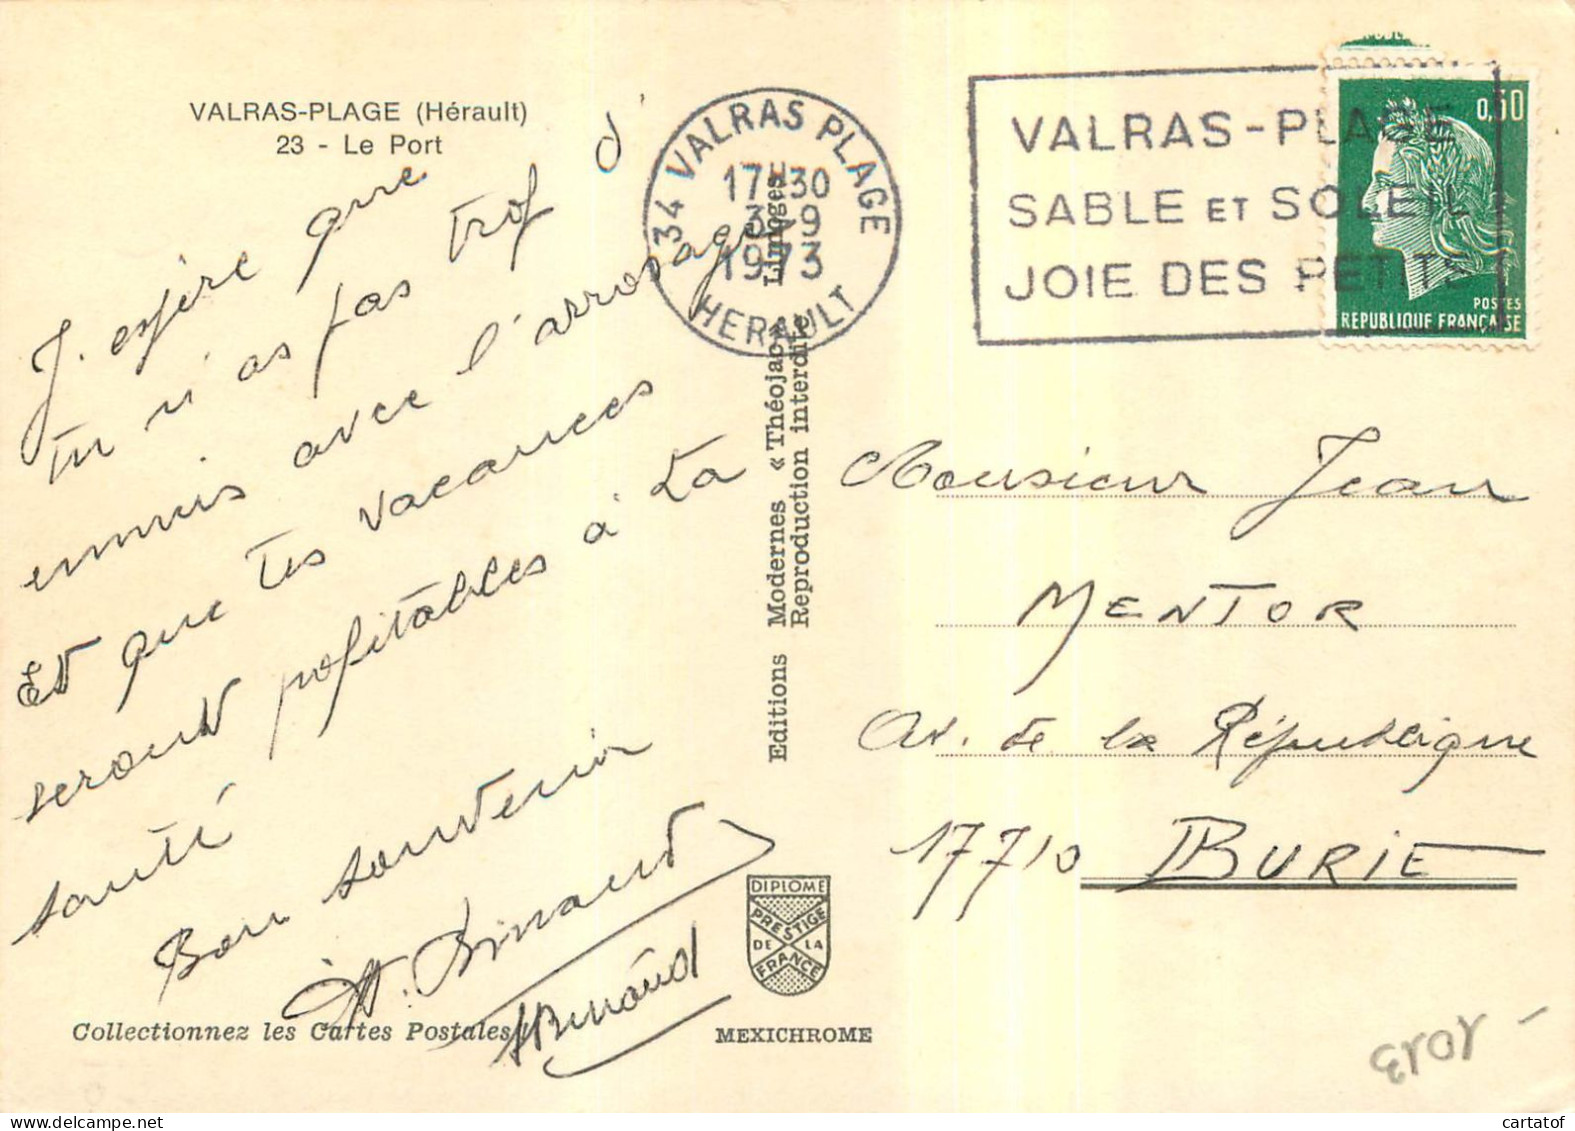 VALRAS-PLAGE (Hérault)
23 - Le Port
J'espère que
tu n'as pas trop d'
ennuis avec l'arrosage
Et que tes vacances
seront profitables à ta
santé
Bon souvenir
34 VALRAS PLAGE
17H30
3-9
1973
HERAULT
VALRAS-PLAGE
SABLE ET SOLEIL
JOIE DES PETITS
0,30
POSTES
REPUBLIQUE FRANÇAISE
Editions Modernes « Théojac » Limoges
Reproduction interdite
Monsieur Jean
MENTOR
Av. de la République
17710 BURIE
DIPLOME
PRESTIGE
DE LA
FRANCE
Collectionnez les Cartes Postales
MEXICHROME
cartatof